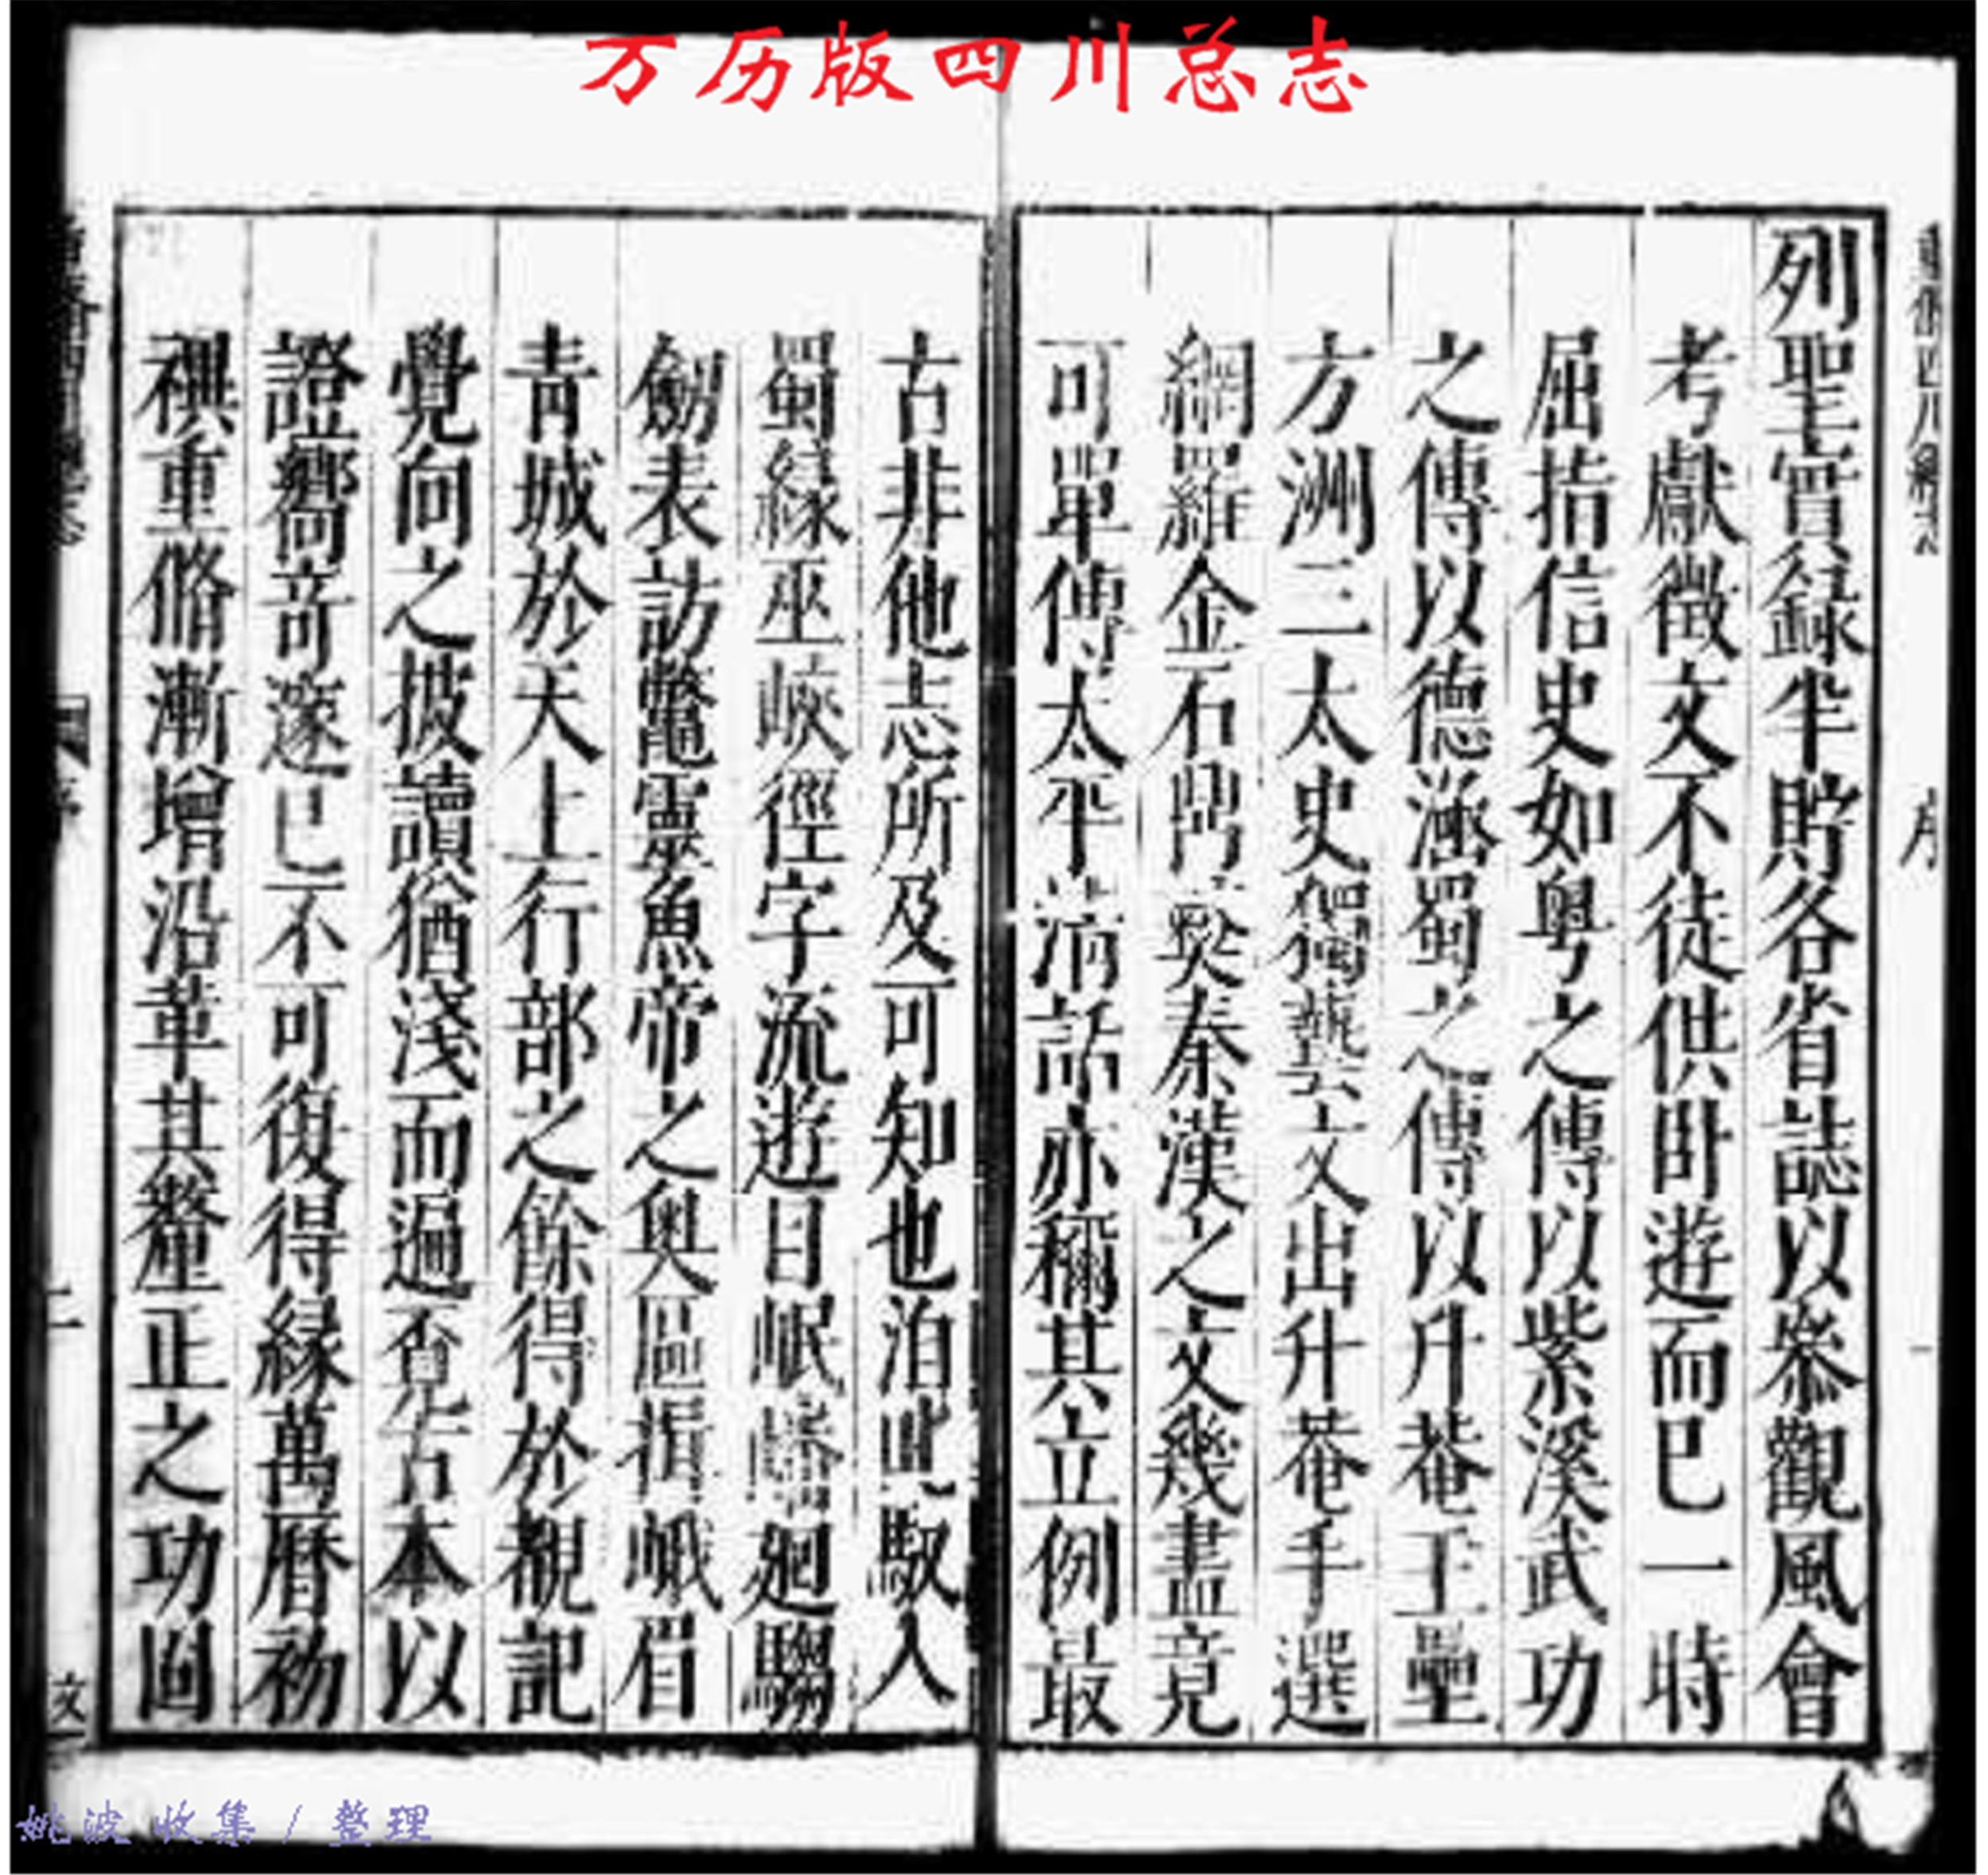 万历版四川总志
重脩四川總志
序
一
列聖實録牟貯各省誌以叅觀風會
考獻徵文不徒供卧遊而已一時
屈指信史如粤之傳以紫溪武功
之傳以德涵蜀之傳以升菴玉壘
方洲三太史藝文出升菴手選
網羅金石鬪奘秦漢之文幾盡竟
可單傳太平清話亦稱其立例最
古非他志所及可知也洎馭入
蜀緣巫峽徑字流遊目岷嶓廻騶
劒表訪鼈靈魚帝之奥區揖峨眉
青城於天上行部之餘得於覩記
覺向之披讀猶淺而遍覔古本以
證嚮竒邃已不可復得緣萬曆初
禩重脩漸增沿革其釐正之功固
總志
序
二
文
姚波 收集 / 整理